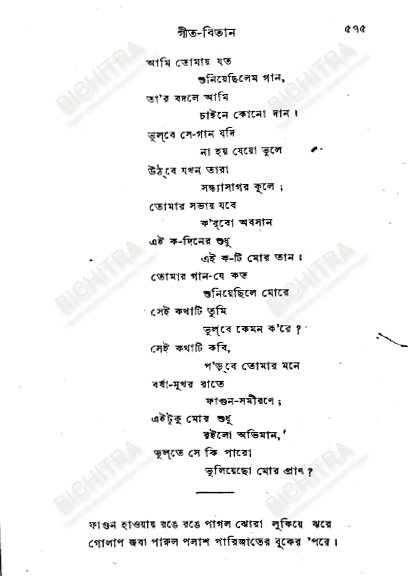 গীত-বিতান
৫৭৫
আমি তোমায় যত
শুনিয়েছিলেম গান,
তা'র বদলে আমি
চাইনে কোনো দান।
ভুল্‌বে সে-গান যদি
না হয় যেয়ো ভুলে
উঠ্‌বে যখন তারা
সন্ধ্যাসাগর কূলে ;
তোমার সভায় যবে
ক'র্‌বো অবসান
এই ক-দিনের শুধু
এই ক-টি মোর তান।
তোমার গান-যে কত
শুনিয়েছিলে মোরে
সেই কথাটি তুমি
ভুল্‌বে কেমন ক'রে ?
সেই কথাটি কবি,
প'ড়্‌বে তোমার মনে
বর্ষা-মুখর রাতে
ফাগুন-সমীরণে ;
এইটুকু মোর শুধু
রইলো অভিমান,
ভুল্‌তে সে কি পারো
ভুলিয়েছো মোর প্রাণ ?
ফাগুন হাওয়ায় রঙে রঙে পাগল ঝোরা লুকিয়ে ঝরে
গোলাপ জবা পারুল পলাশ পারিজাতের বুকের 'পরে।
BICHITRA
BICHITRA
BICHITRA
BICHITRA
BICHITRA
BICHITRA